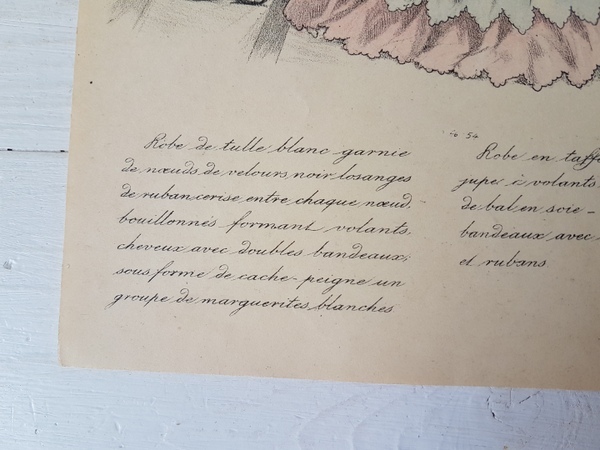 Robe de tulle blanc garnie
de nœuds de velours noir losanges
de ruban cerise entre chaque nœud,
bouillonnés formant volants,
cheveux avec doubles bandeaux;
sous forme de cache-peigne un
groupe de marguerites blanches
54
Robe en taff
jupe à volants
de bal en soie -
bandeaux avec
et rubans